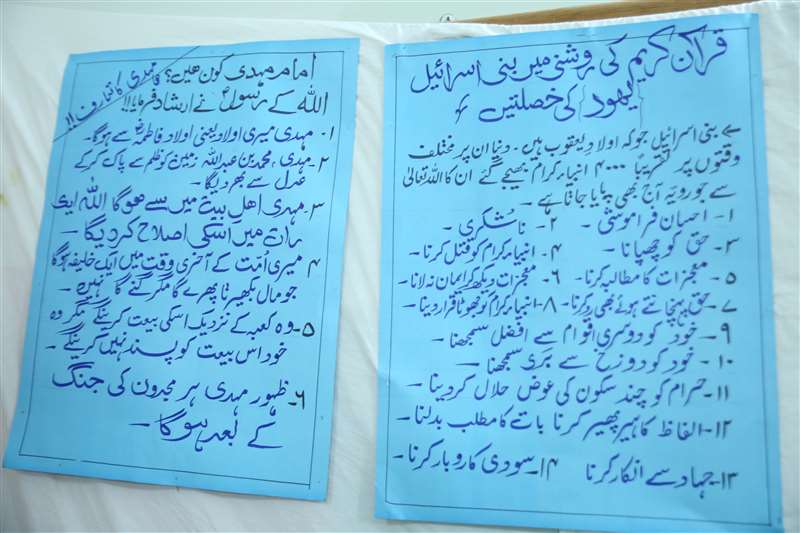 قرآن کریم کی روشنی میں بنی اسرائیل
یہود کی خصلتیں
بنی اسرائیل جو کہ اولادِ یعقوب ہیں۔ دنیا ان پر مختلف
وقتوں پر تقریباً ۴۰۰۰ انبیاء کرام بھیجے گئے ان کا اللہ تعالیٰ
سے جو رویہ آج بھی پایا جاتا ہے۔
۱- احسان فراموشی - ۲- ناشکری -
۳- حق کو چھپانا - ۴- انبیاء کرام کو قتل کرنا -
۵- معجزات کا مطالبہ کرنا - ۶- معجزات دیکھ کر ایمان نہ لانا -
۷- حق پہچانتے ہوئے بھی رد کرنا - ۸- انبیاء کرام کو جھوٹا قرار دینا -
۹- خود کو دوسری اقوام سے افضل سمجھنا -
۱۰- خود کو دوزخ سے بری سمجھنا -
۱۱- حرام کو چند سکون کی عوض حلال کر دینا -
۱۲- الفاظ کا ہیر پھیر کرنا بات کا مطلب بدلنا -
۱۳- جہاد سے انکار کرنا ۱۴- سودی کاروبار کرنا -
امام مہدی کون ھیں؟
مہدی کا تعارف!!
اللہ کے رسولؐ نے ارشاد فرمایا!!
۱- مہدی میری اولاد یعنی اولادِ فاطمہؓ سے ہوگا -
۲- مہدی، محمد بن عبداللہ زمین کو ظلم سے پاک کر کے
عدل سے بھر دیگا -
۳- مہدی اھل بیت میں سے ھوگا اللہ ایک
رات میں اسکی اصلاح کر دیگا -
۴- میری امّت کے آخری وقت میں ایک خلیفہ ہوگا
جو مال بکھیرتا پھرے گا مگر گنے گا نہیں -
۵- وہ کعبہ کے نزدیک اسکی بیعت کرینگے مگر وہ
خود اس بیعت کو پسند نہیں کرینگے -
۶- ظہور مہدی ہر مجدون کی جنگ
کے بعد ہوگا -